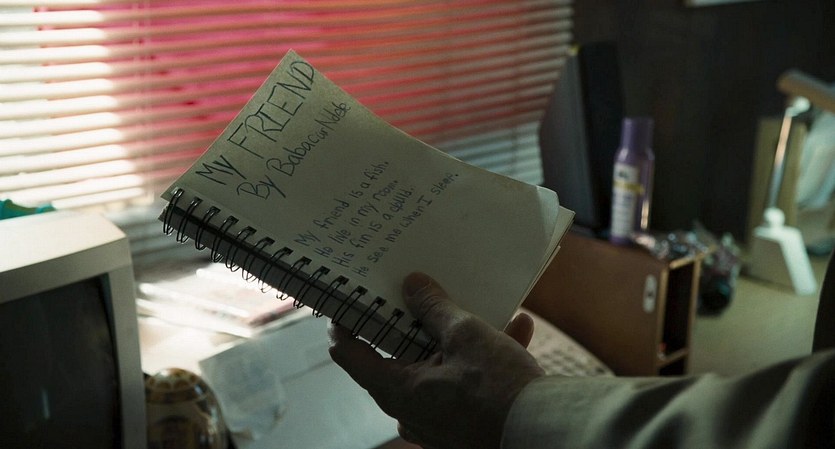 My FRIEND
By Babacar Ndeb
My friend is a fish.
He live in my room.
His fin is a cloud.
He see me when I sleep.